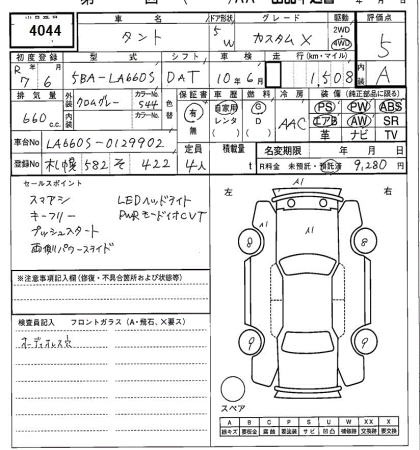 出品番号 車名 ドア形状 グレード 駆動 評価点
4044 タント 5W カスタムX 2WD 4WD 5
初度登録 型式 シフト 車検 走行(km・マイル) 内装
R 7年6月 5BA-LA660S DAT 10年6月 1,508 A
排気量 外装 カラーNo. 色替 保証書 車歴 燃料 冷房 装備(純正部品に限る)
660c.c. クロムグレー S44 有 自家用 G AAC PS PW ABS
内装 カラーNo. 無 レンタ D エアB AW SR
革 ナビ TV
車台No LA660S-0129902 定員 積載量 名変期限 年 月 日
登録No 札幌 582 そ 422 4人 t R料金 未預託・預託済 9,280円
セールスポイント
スマアシ LEDヘッドライト
キーフリー PWRモード付CVT
プッシュスタート
両側パワースライド
※注意事項記入欄(修復・不具合箇所および状態等)
検査員記入 フロントガラス(A・飛石、X要ス)
オーディオレス
左 右
A1 A1
8 8
9 9
スペア
A B C P S U W XX X
線キズ 要板金 腐蝕 要塗装 サビ 凹凸 補修跡 交換跡 要交換